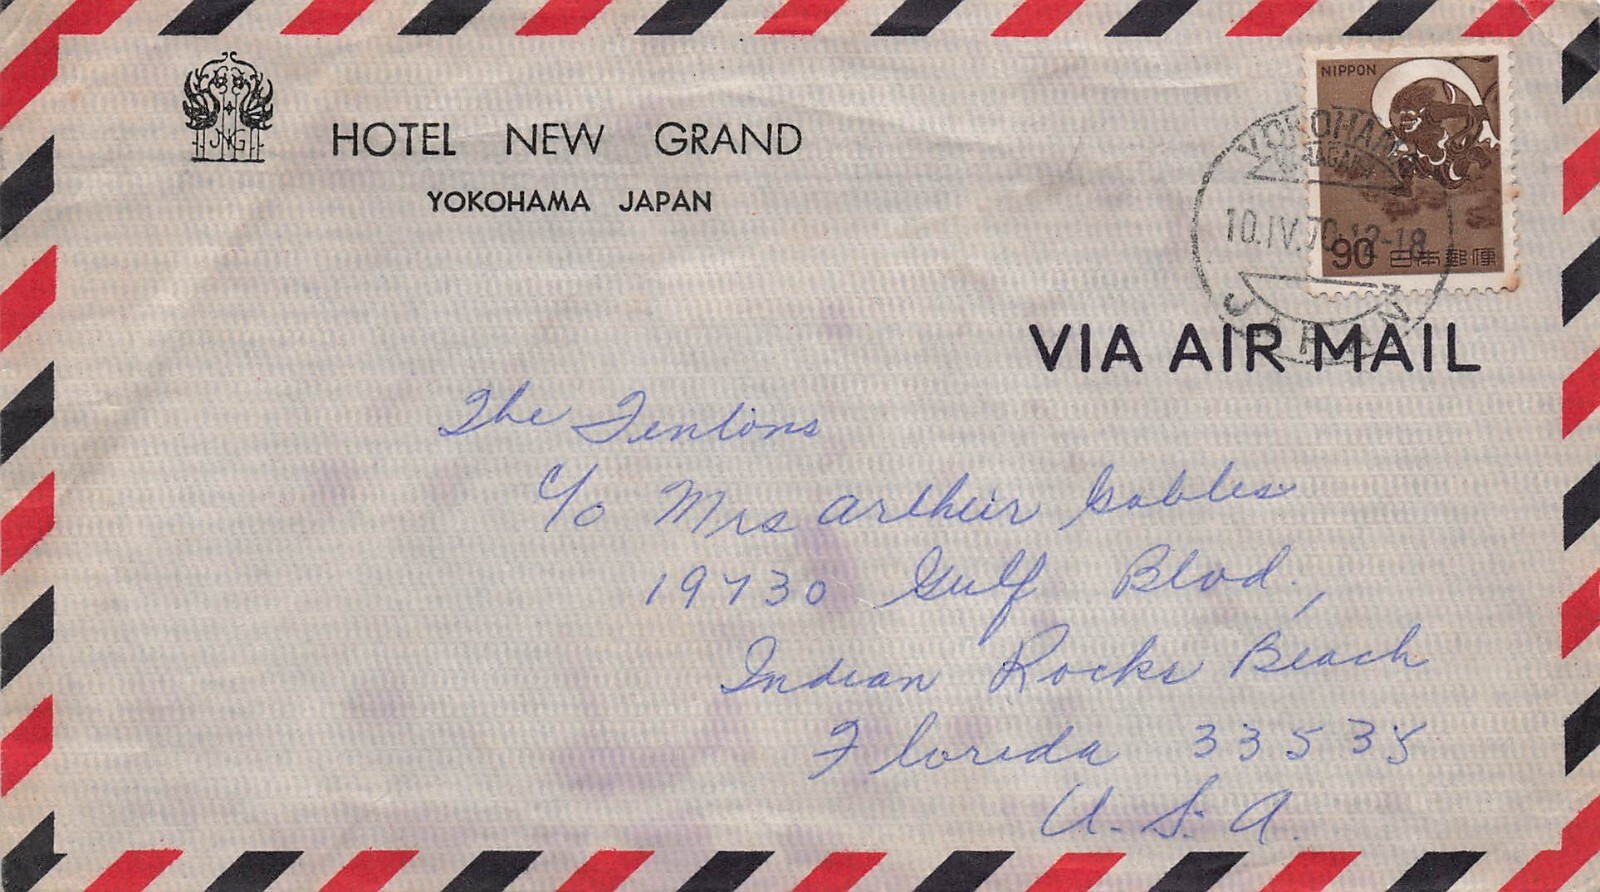 JNG
HOTEL NEW GRAND
YOKOHAMA JAPAN
NIPPON
90 日本郵便
YOKOHAMA
10.IV.70.12-18
JAPAN
VIA AIR MAIL
The Fentons
c/o Mrs Arthur Gobles
19730 Gulf Blvd.,
Indian Rocks Beach
Florida 33535
U.S.A.